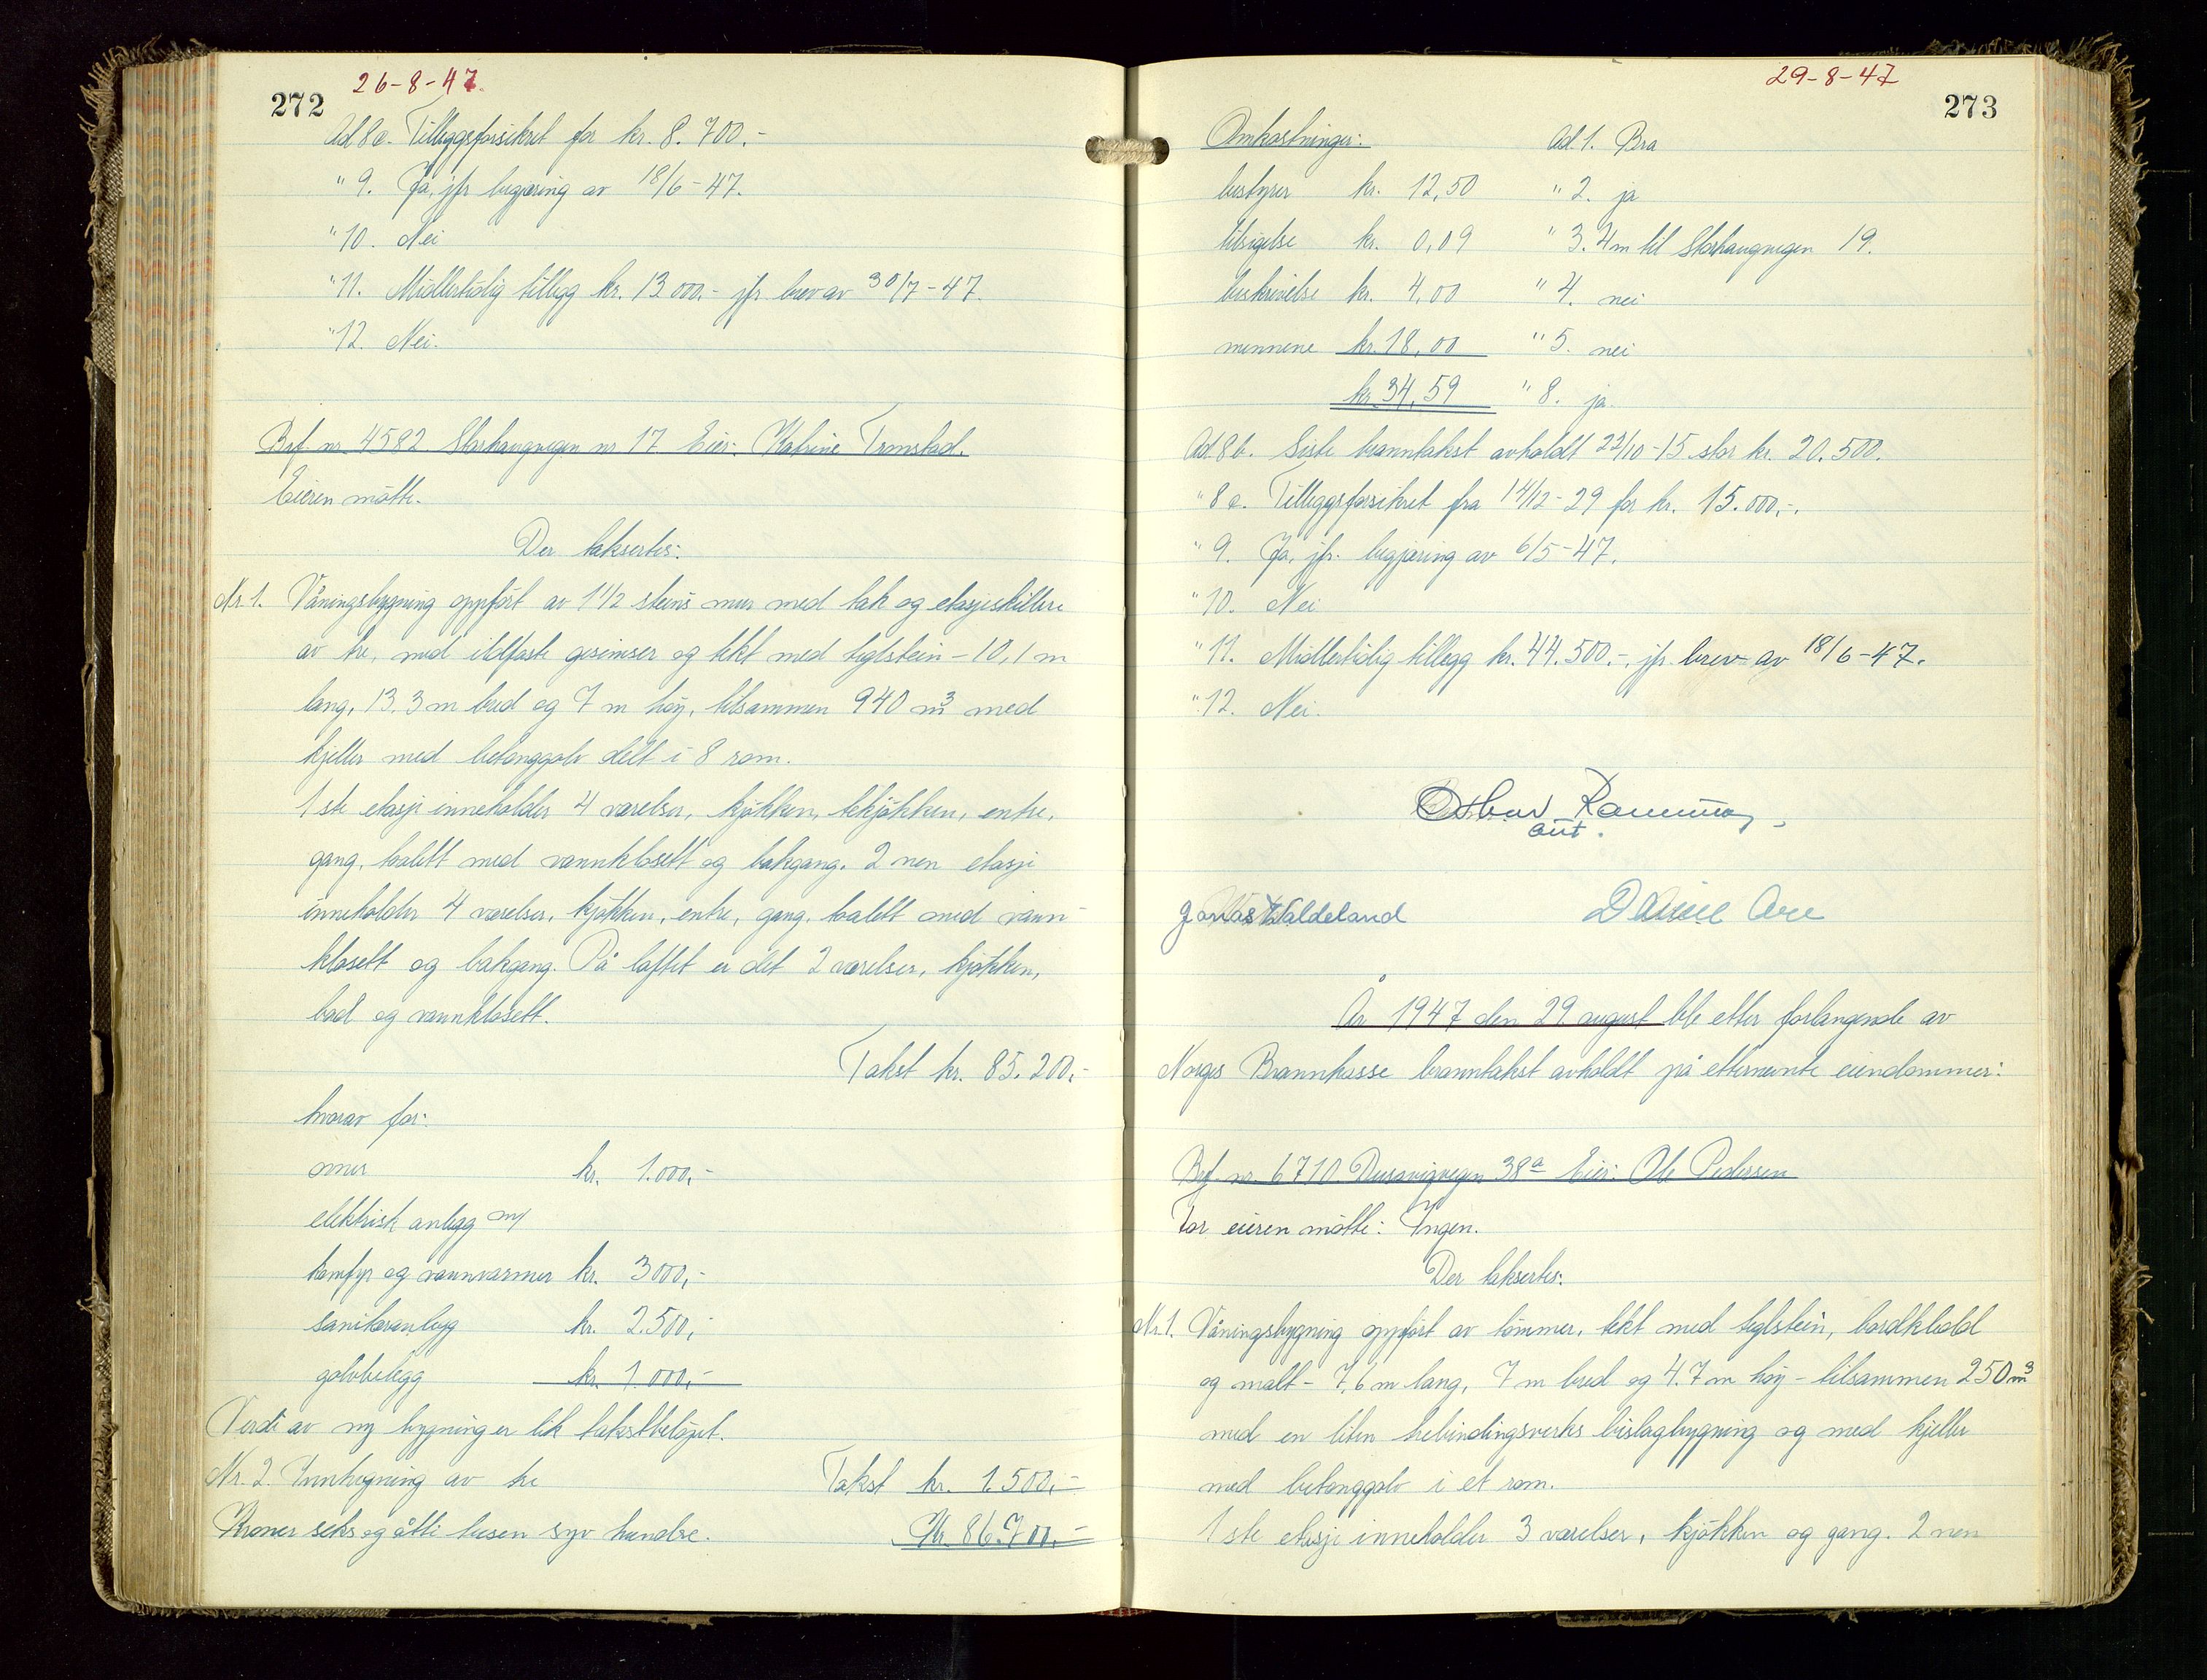 26-8-47.
272
Ad 8c. Tilleggsforsikret for kr. 8.700.-
" 9. Ja, jfr begjæring av 18/6-47.
" 10. Nei
" 11. Midlertidig tillegg kr. 13 000.- jfr. brev av 30/7-47.
" 12. Nei.
Brf. nr 4582 Storhaugvegen nr 17 Eier: Katrine Tronstad.
Eieren møtte.
Der taksertes:
Nr. 1. Våningsbygning oppført av 1 1/2 steins mur med tak og etasjeskillere
av tre, med ildfaste gesimser og tekt med teglstein - 10,1 m
lang, 13.3 m bred og 7 m høy, tilsammen 940 m3 med
kjeller med betonggolv delt i 8 rom.
1 ste etasje inneholder 4 værelser, kjøkken, tekjøkken, entre,
gang, toalett med vannklosett og bakgang. 2 nen etasje
inneholder 4 værelser, kjøkken, entre, gang, toalett med vann-
klosett og bakgang. På loftet er det 2 værelser, kjøkken,
bad og vannklosett.
Takst kr. 85.200.-
hvorav for:
mur kr. 1.000,-
elektrisk anlegg m/
komfyr og vannvarmer kr. 3000,-
sanitæranlegg kr. 2.500,-
golvbelegg kr. 1.000,-
Verdi av ny bygning er lik takstbeløpet.
Nr. 2. Innhegning av tre Takst kr. 1.500,-
Kroner seks og åtti tusen syv hundre. Kr. 86.700,-
29-8-47
273
Omkostninger: Ad. 1. Bra
bestyrer kr. 12,50 " 2. ja
tilsigelse kr. 0,09 " 3. 4 m til Storhaugvegen 19.
beskrivelse kr. 4,00 " 4. nei
mennene kr. 18,00 " 5. nei
kr. 34,59 " 8. ja
Ad. 8b. Siste branntakst avholdt 22/10-15 stor kr. 20.500.
" 8c. Tilleggsforsikret fra 14/12-29 for kr. 15.000,-.
" 9. Ja, jfr. begjæring av 6/5-47.
" 10. Nei
" 11. Midlertidig tillegg kr. 44.500.-, jfr. brev av 18/6-47.
" 12. Nei.
aut.
Jonas Waldeland
År 1947 den 29. august ble etter forlangende av
Norges Brannkasse branntakst avholdt på etternevnte eiendommer:
Brf. nr. 6710 Dusavigvegen 38a Eier: Ole Pedersen
For eieren møtte: Ingen.
Der taksertes:
Nr. 1. Våningsbygning oppført av tømmer, tekt med teglstein, bordkledd
og malt - 7,6 m lang, 7 m bred og 4.7 m høy - tilsammen 250 m3
med en liten trebindingsverks bislagbygning og med kjeller
med betonggolv i et rom.
1 ste etasje inneholder 3 værelser, kjøkken og gang. 2 nen